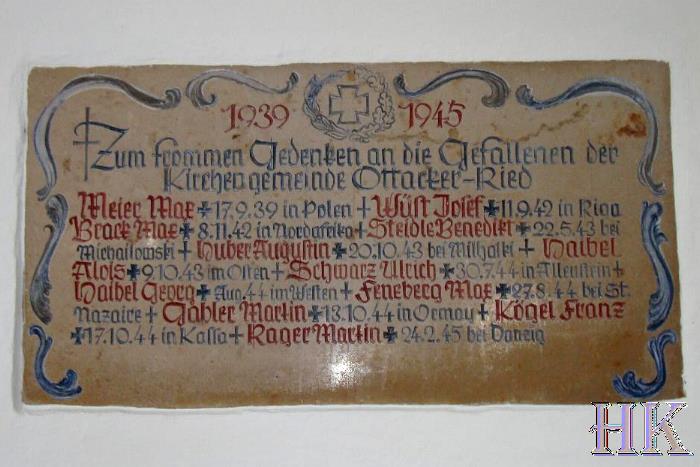 1939 1945
Zum frommen Gedenken an die Gefallenen der
Kirchengemeinde Ottacker-Ried
Meier Max ✠ 17.9.39 in Polen + Wüst Josef ✠ 11.9.42 in Riga
Brack Max ✠ 8.11.42 in Nordafrika + Steidle Benedikt ✠ 22.5.43 bei
Michailowski + Huber Augustin ✠ 20.10.43 bei Milhalki + Haibel
Alois ✠ 9.10.43 im Osten + Schwarz Ulrich ✠ 30.7.44 in Allenstein +
Haibel Georg ✠ Aug. 44 im Westen + Feneberg Max ✠ 27.8.44 bei St.
Nazaire + Gabler Martin ✠ 13.10.44 in Ormay + Kögel Franz
✠ 17.10.44 in Kassa + Rager Martin ✠ 24.2.45 bei Danzig
HK